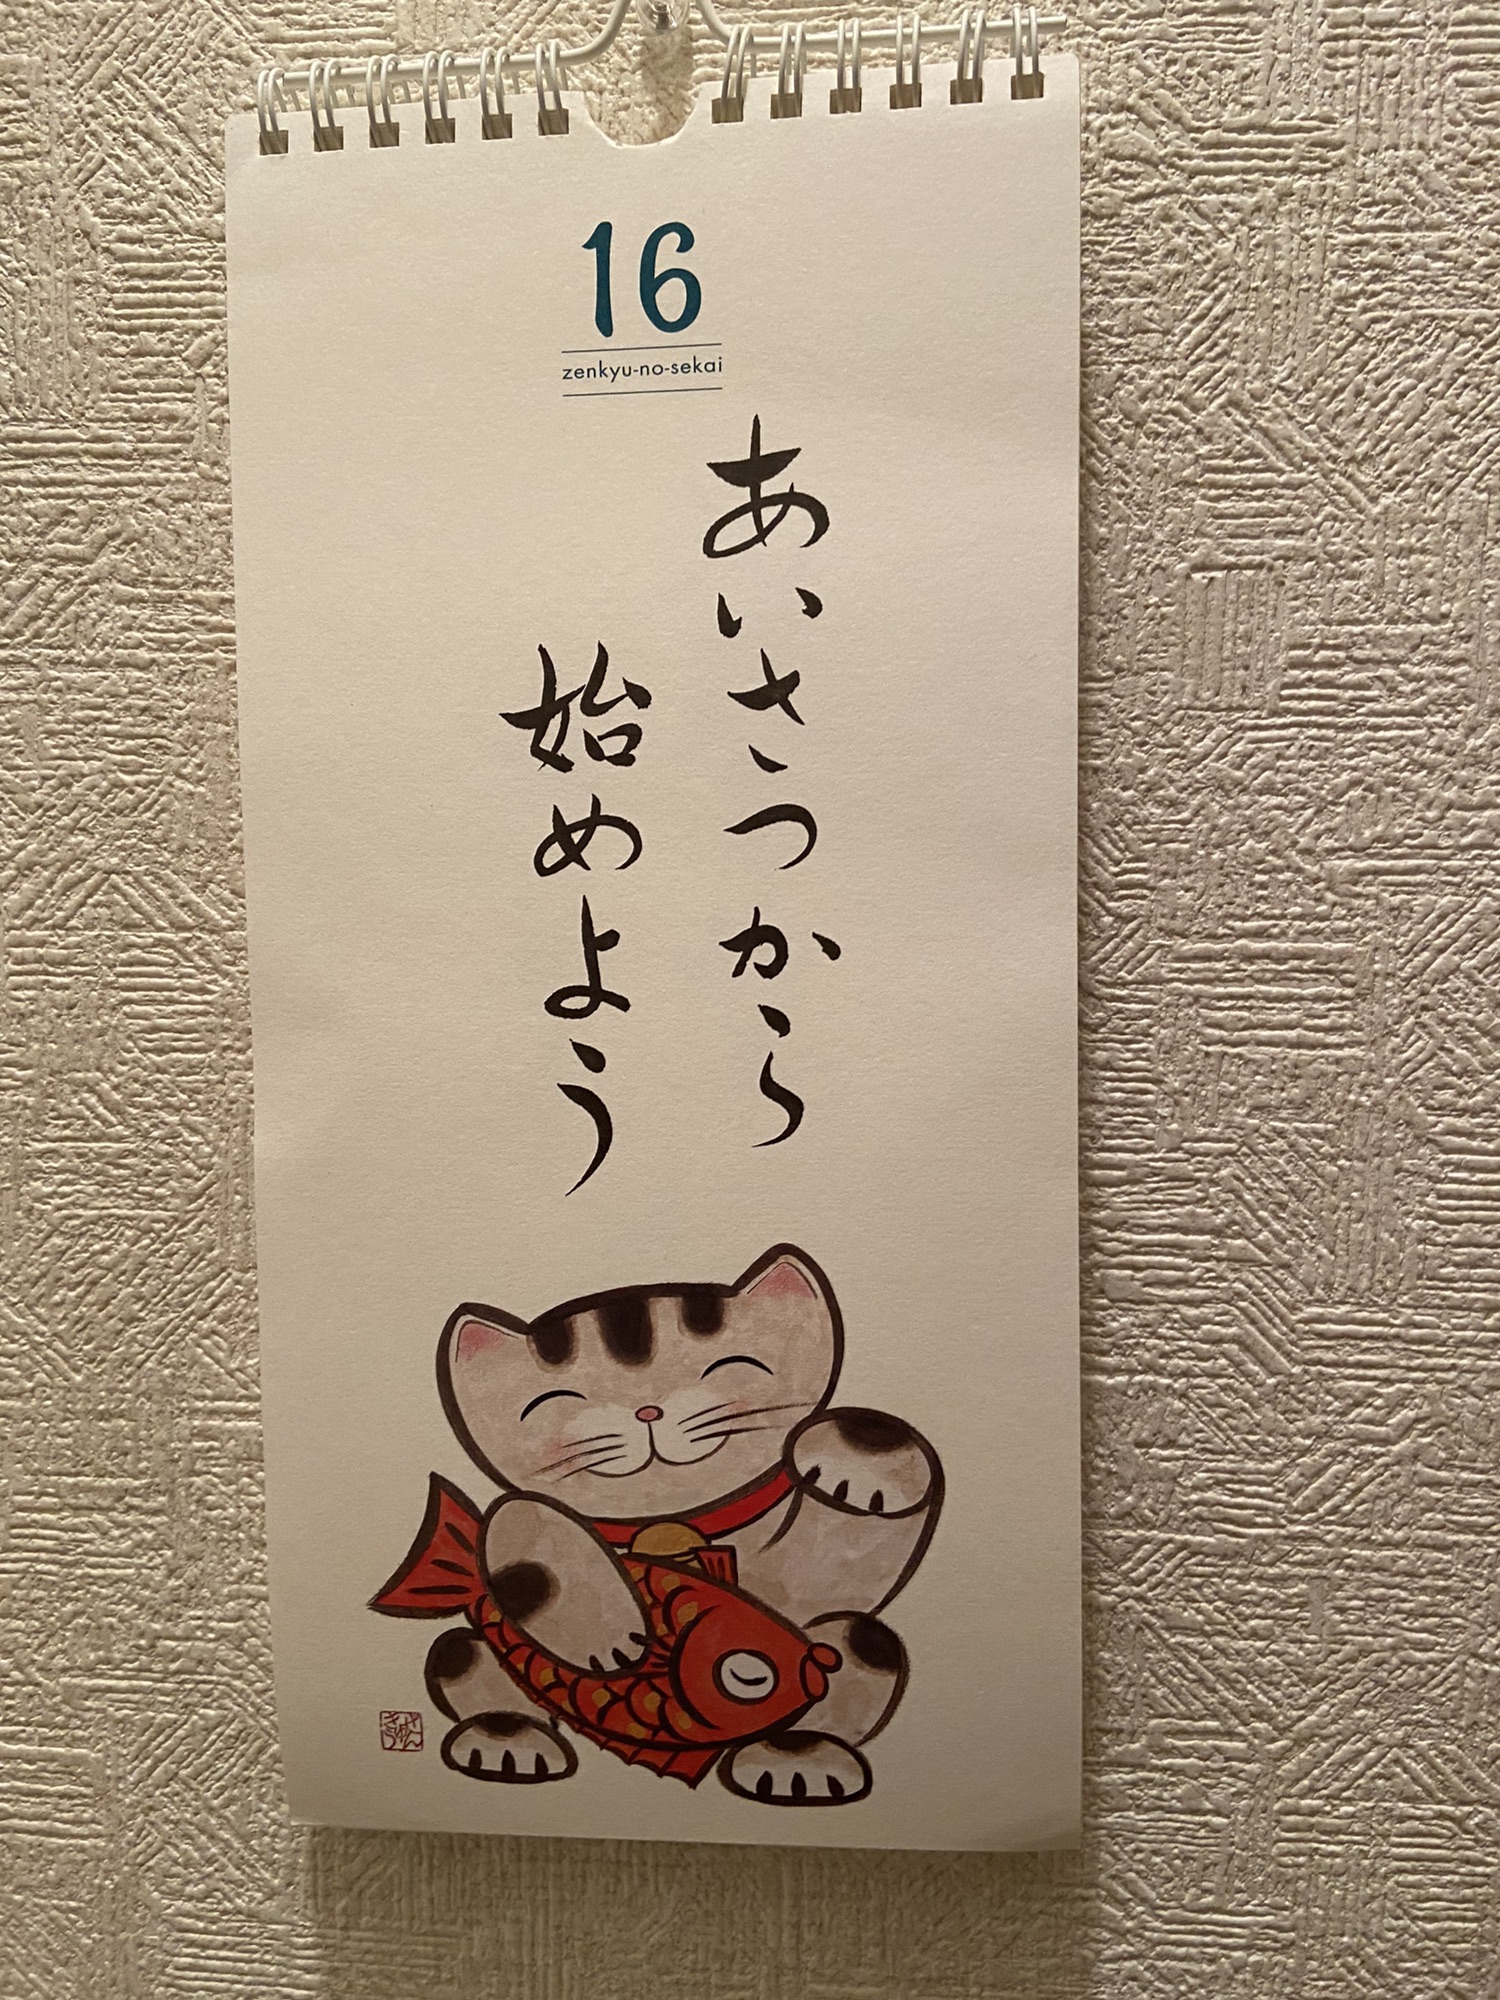 16
zenkyu-no-sekai
あいさつから
始めよう
ぜん
きゅう